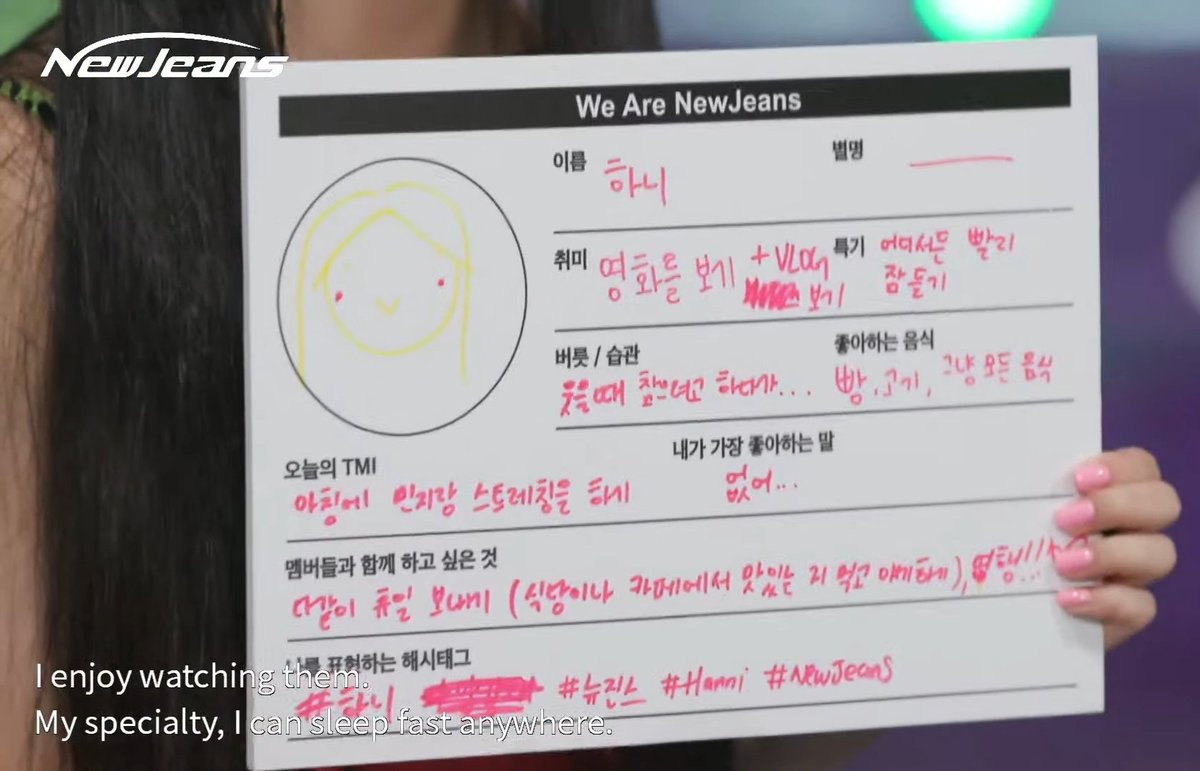 NewJeans
We Are NewJeans
이름 하니
별명
취미 영화를 보기 + VLOG 보기
특기 어디서든 빨리
잠들기
버릇 / 습관
웃을때 참으려고 하다가...
좋아하는 음식
빵, 고기, 그냥 모든 음식
오늘의 TMI
아침에 민지랑 스트레칭을 하기
내가 가장 좋아하는 말
없어...
멤버들과 함께 하고 싶은 것
다같이 휴일 보내기 (식당이나 카페에서 맛있는 거 먹고 얘기하기), 여행!!
나를 표현하는 해시태그
#하니 #뉴진스 #Hanni #NewJeans
I enjoy watching them.
My specialty, I can sleep fast anywhere.